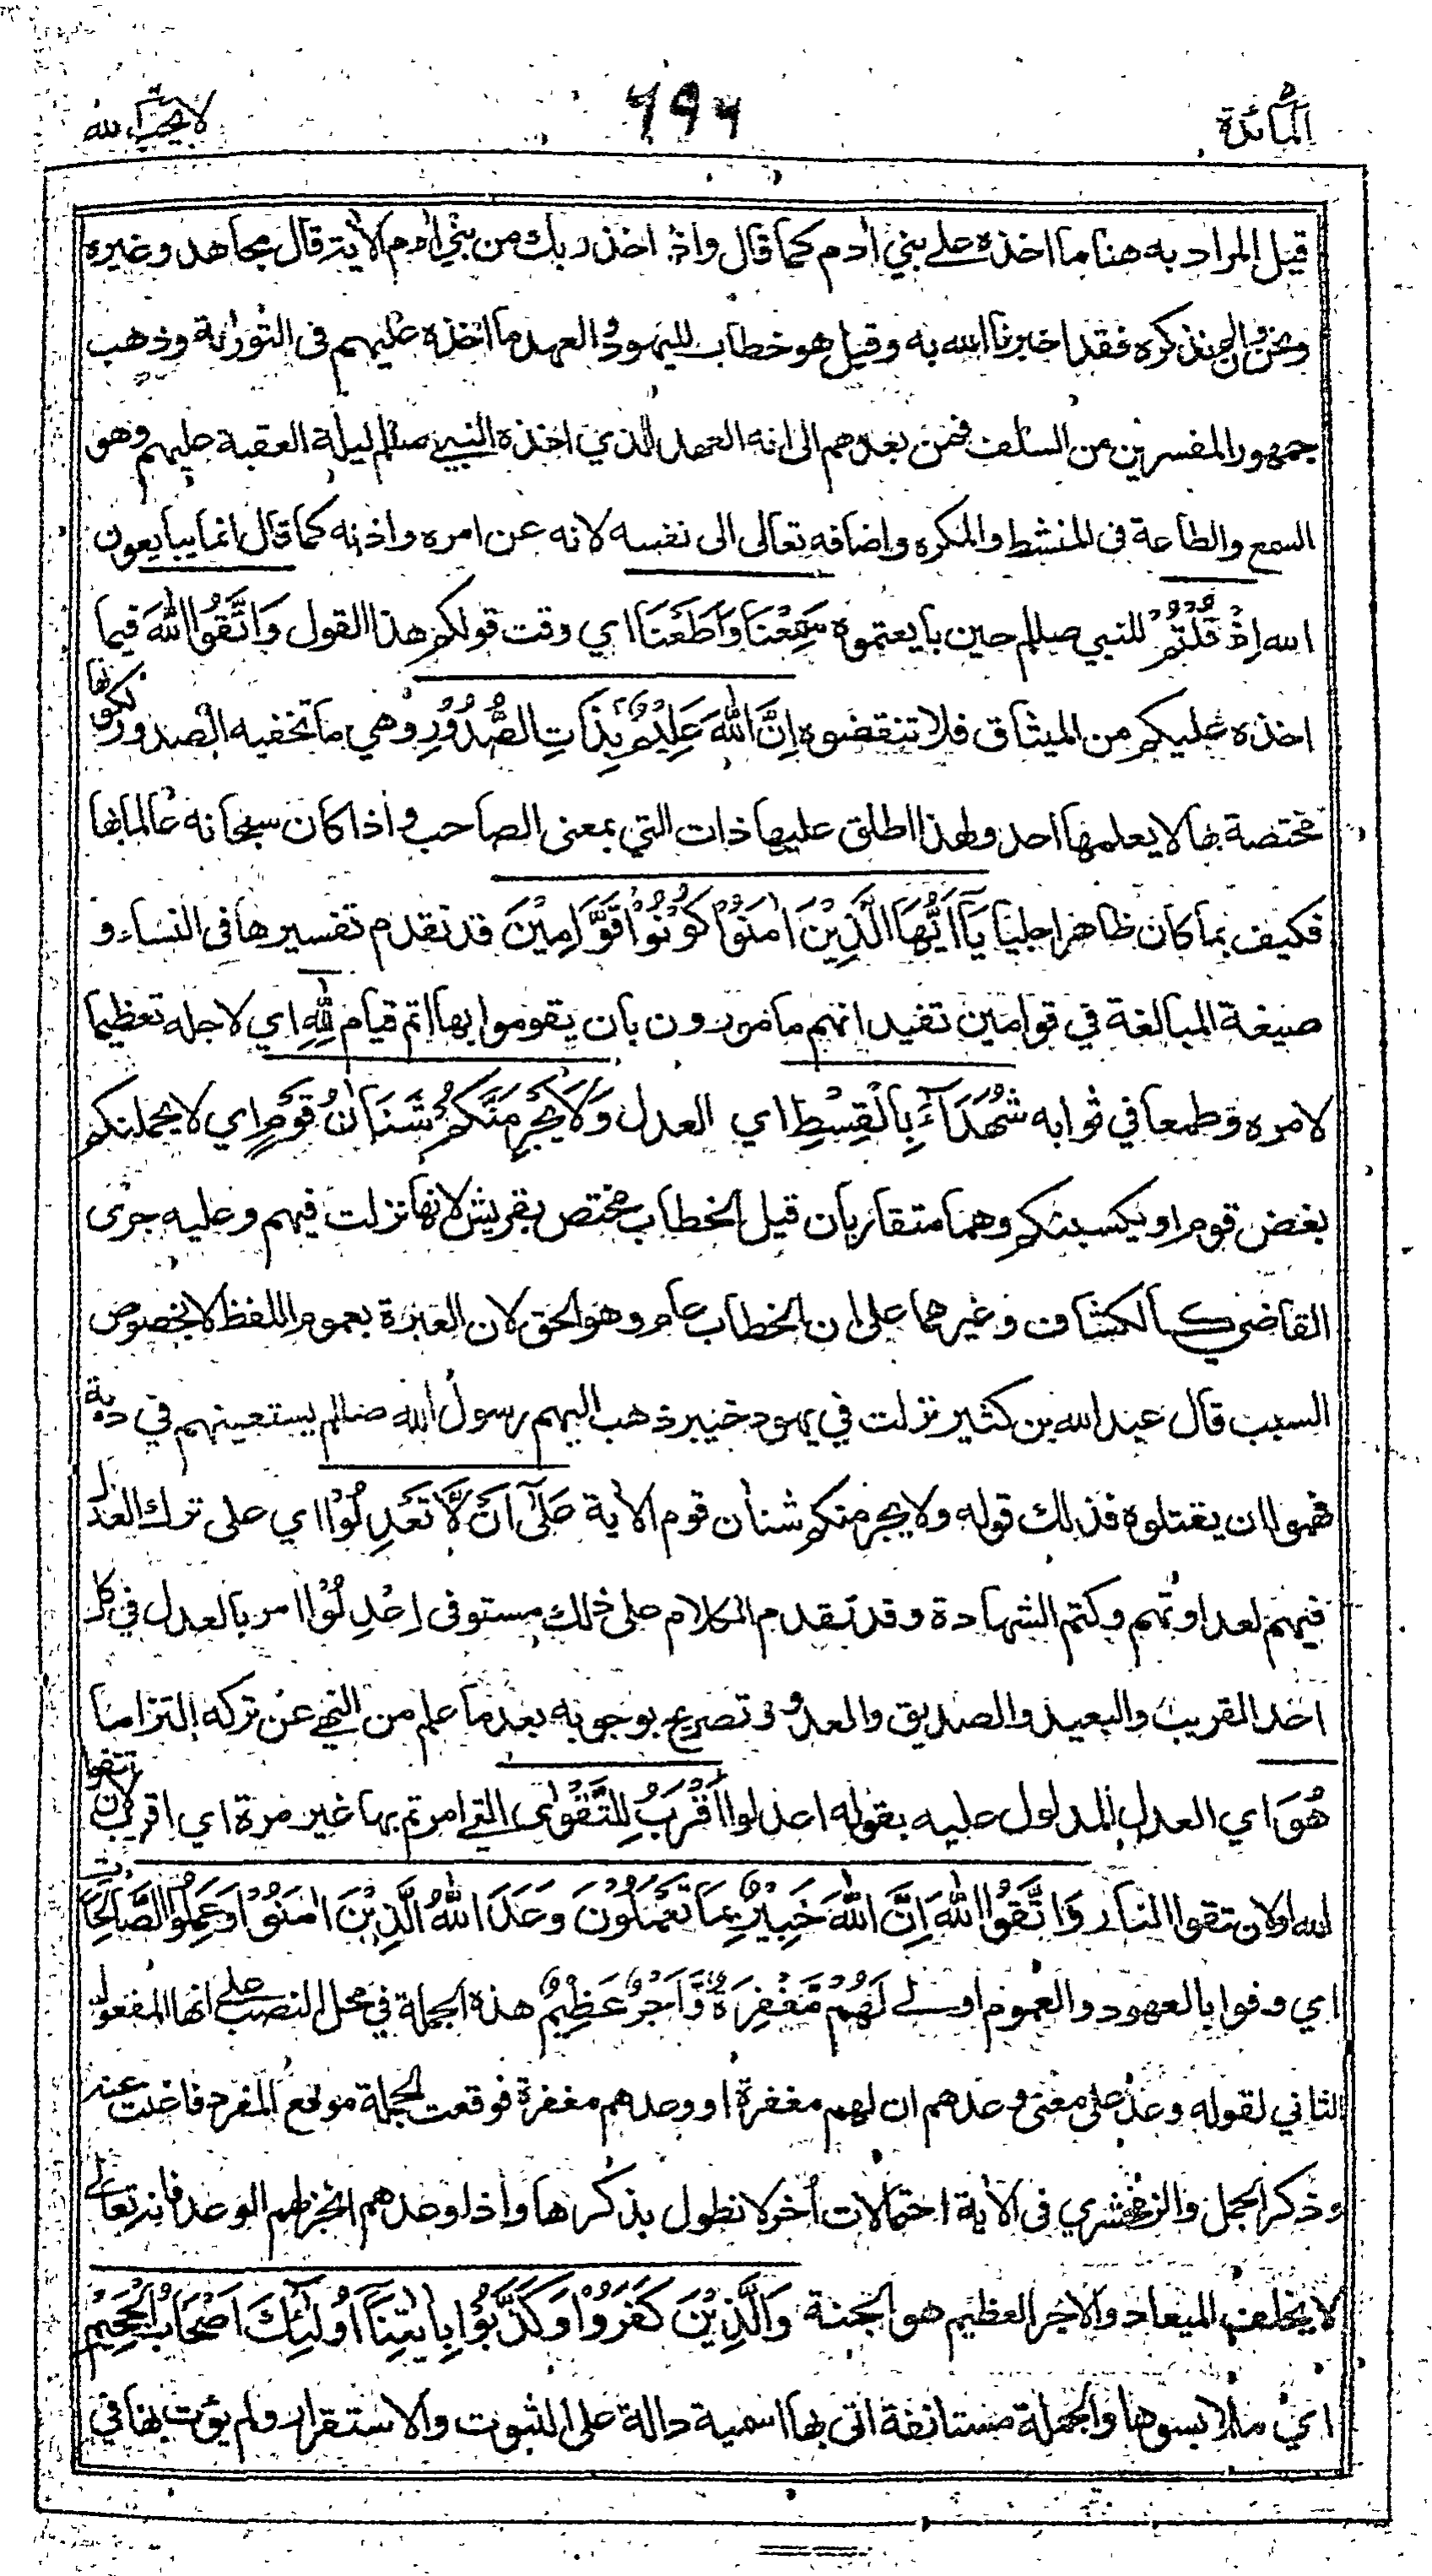 المائدة
٦٩٦
لا يحب الله
قيل المراد به هنا ما اخذه على بني ادم كما قال واذ اخذ ربك من بني ادم الأية قال مجاهد وغيره
ونحن وان لم نذكره فقد اخبرنا الله به وقيل هو خطاب لليهود والعهد ما اخذه عليهم في التورىة وذهب
جمهور المفسرين من السلف فمن بعدهم الى انه العهد الذي اخذه النبي صللم ليلة العقبة عليهم وهو
السمع والطاعة في المنشط والمكره واضافه تعالى الى نفسه لانه عن امره واذنه كما قال انما يبايعون
الله اِذْ قُلْتُمْ للنبي صللم حين بايعتموه سَمِعْنَا وَاَطَعْنَا اي وقت قولكم هذا القول وَاتَّقُوا اللّٰهَ فيما
اخذه عليكم من الميثاق فلا تنقضوه اِنَّ اللّٰهَ عَلِيْمٌۢ بِذَاتِ الصُّدُوْرِ وهي ما تخفيه الصدور لكونها
مختصة بها لا يعلمها احد ولهذا اطلق عليها ذات التي بمعنى الصاحب واذا كان سبحانه عالما بها
فكيف بما كان ظاهرا جليا يَآ اَيُّهَا الَّذِيْنَ اٰمَنُوْا كُوْنُوْا قَوَّامِيْنَ قد تقدم تفسيرها في النساء و
صيغة المبالغة في قوامين تفيد انهم مامورون بان يقوموا بها اتم قيام لِلّٰهِ اي لاجله تعظيما
لامره وطمعا في ثوابه شُهَدَآءَ بِالْقِسْطِ اي العدل وَلَا يَجْرِمَنَّكُمْ شَنَاٰنُ قَوْمٍ اي لا يحملنكم
بغض قوم او يكسبنكم وهما متقاربان قيل الخطاب مختص بقريش لانها نزلت فيهم وعليه جرى
القاضي كالكشاف وغيرهما على ان الخطاب عام وهو الحق لان العبرة بعموم اللفظ لا بخصوص
السبب قال عبد الله بن كثير نزلت في يهود خيبر ذهب اليهم رسول الله صللم يستعينهم في دية
فهموا ان يقتلوه فذلك قوله ولا يجرمنكم شنأن قوم الأية عَلٰٓى اَنْ لَّا تَعْدِلُوْا اي على ترك العدل
فيهم لعداوتهم وكتم الشهادة وقد تقدم الكلام على ذلك مستوفى اِعْدِلُوْا امر بالعدل في كل
احد القريب والبعيد والصديق والعدو وتصريح بوجوبه بعد ما علم من النهي عن تركه التزاما
هُوَ اي العدل المدلول عليه بقوله اعدلوا اَقْرَبُ لِلتَّقْوٰى التي امرتم بها غير مرة اي اقرب لان تتقوا
الله اولان تقوا النار وَاتَّقُوا اللّٰهَ اِنَّ اللّٰهَ خَبِيْرٌۢ بِمَا تَعْمَلُوْنَ وَعَدَ اللّٰهُ الَّذِيْنَ اٰمَنُوْا وَعَمِلُوا الصَّالِحَاتِ
اي وفوا بالعهود والعموم اولى لَهُمْ مَّغْفِرَةٌ وَّاَجْرٌ عَظِيْمٌ هذه الجملة في محل النصب على انها المفعول
الثاني لقوله وعد على معنى وعدهم ان لهم مغفرة او وعدهم مغفرة فوقعت الجملة موقع المفرد فاغنت عنه
وذكر الجمل والزمخشري في الأية احتمالات اخر لا نطول بذكرها واذا وعدهم انجز لهم الوعد فانه تعالى
لا يخلف الميعاد والاجر العظيم هو الجنة وَالَّذِيْنَ كَفَرُوْا وَكَذَّبُوْا بِاٰيٰتِنَآ اُولٰٓئِكَ اَصْحَابُ الْجَحِيْمِ
اي ملابسوها والجملة مستانفة اتى بها اسمية دالة على الثبوت والاستقرار ولم يؤت بها في